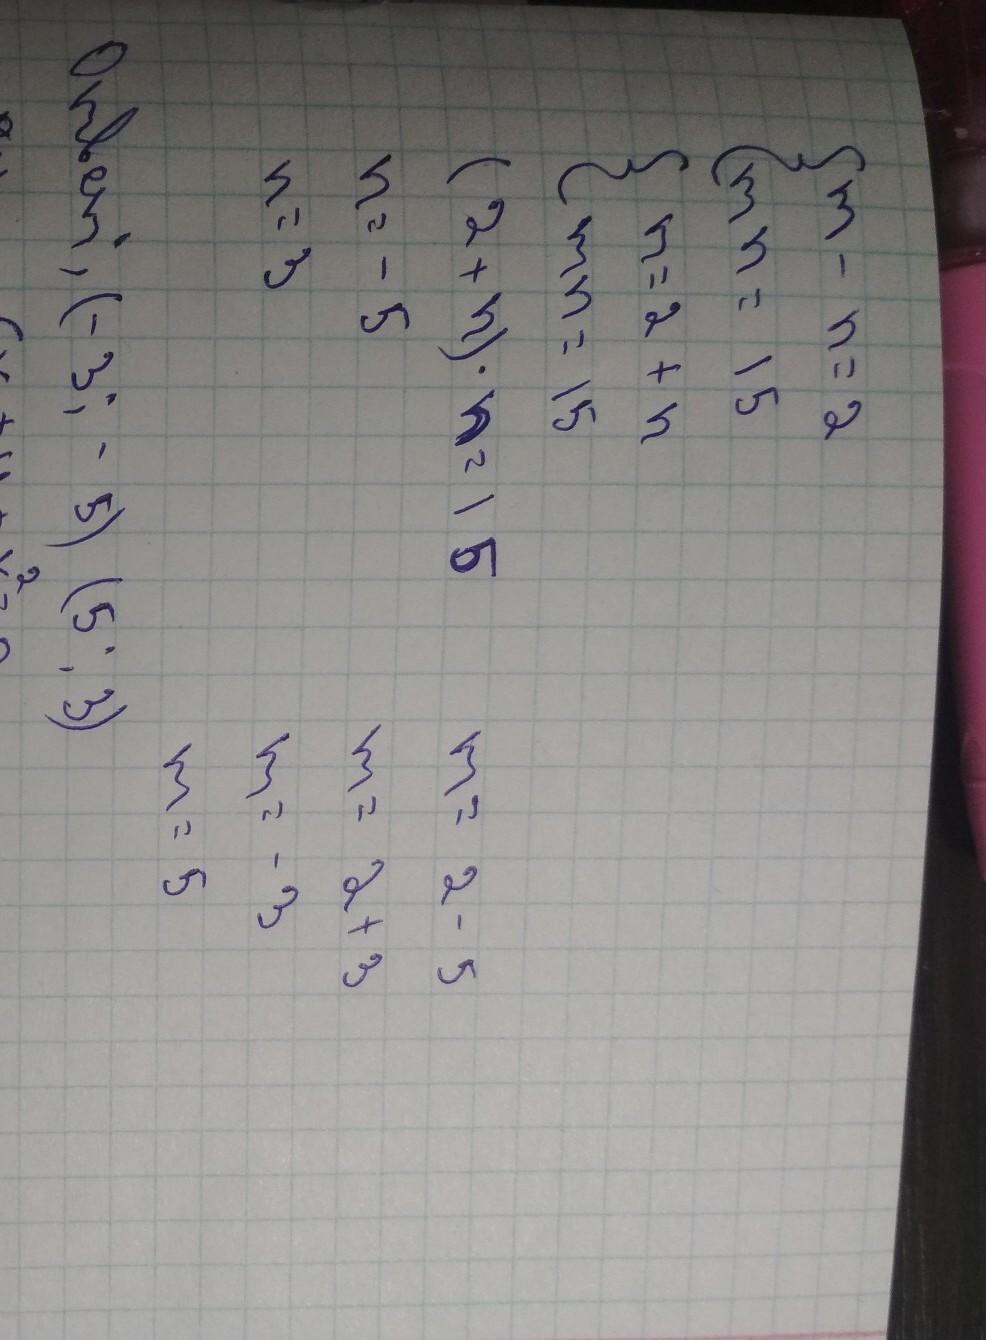 { m - n = 2
mn = 15
{ m = 2 + n
mn = 15
(2 + n) · n = 15
n = - 5
n = 3
m = 2 - 5
m = 2 + 3
m = - 3
m = 5
Ответ: (- 3; - 5) (5; 3)